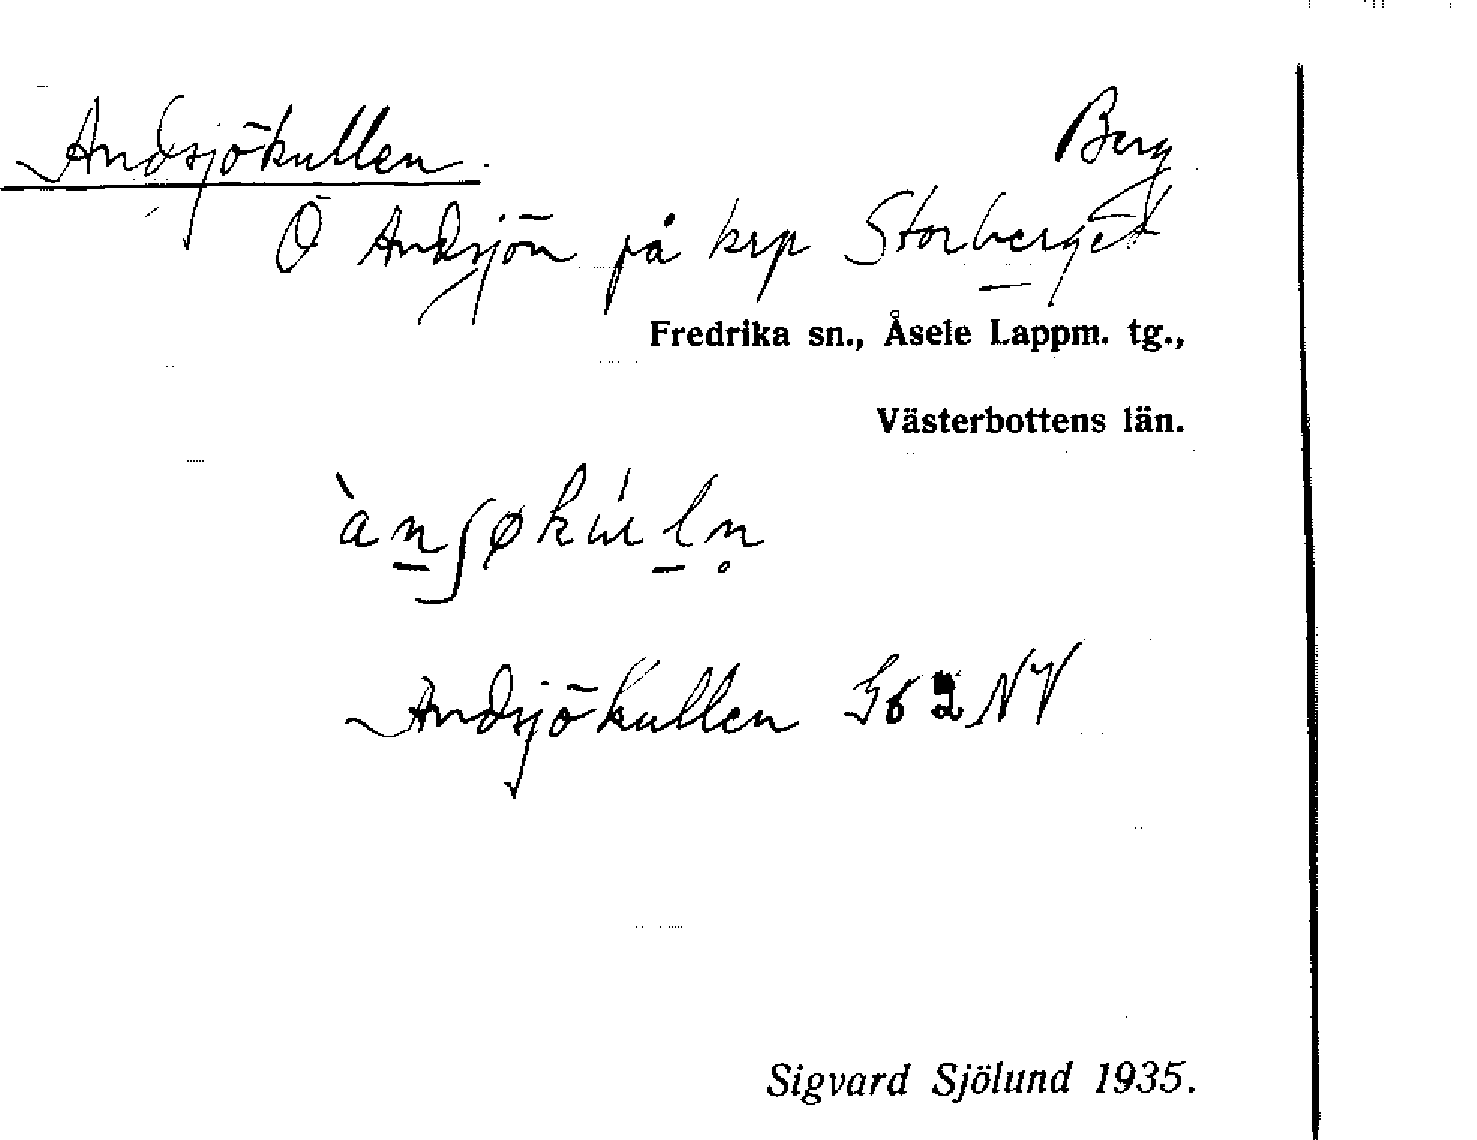 Andsjökullen. Berg
Ö Andsjön på krp Storberget
Fredrika sn., Åsele Lappm. tg.,
Västerbottens län.
àn̲ʃøkúl̲n̥
Andsjökullen 56 2 NV
Sigvard Sjölund 1935.